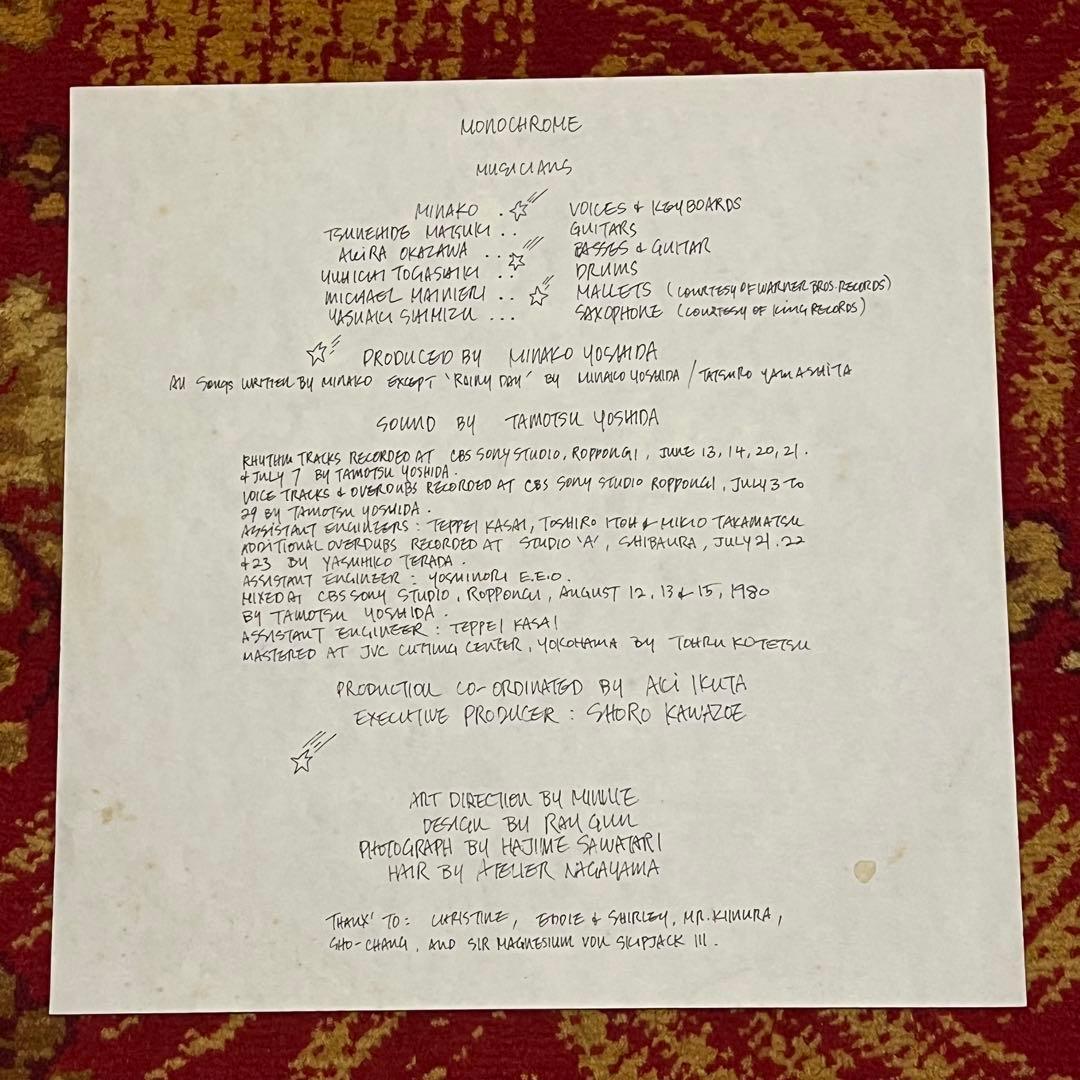 MONOCHROME
MUSICIANS
MINAKO . VOICES & KEYBOARDS
TSUNEHIDE MATSUKI .. GUITARS
AKIRA OKAZAWA .. BASSES & GUITAR
YUHICHI TOGASHIKI .. DRUMS
MICHAEL MAINIERI .. MALLETS (COURTESY OF WARNER BROS. RECORDS)
YASUAKI SHIMIZU ... SAXOPHONE (COURTESY OF KING RECORDS)
PRODUCED BY MINAKO YOSHIDA
All Songs WRITTEN BY MINAKO EXCEPT 'RAINY DAY' BY MINAKO YOSHIDA / TATSURO YAMASHITA
SOUND BY TAMOTSU YOSHIDA
RHYTHM TRACKS RECORDED AT CBS SONY STUDIO, ROPPONGI, JUNE 13, 14, 20, 21.
& JULY 7 BY TAMOTSU YOSHIDA.
VOICE TRACKS & OVERDUBS RECORDED AT CBS SONY STUDIO ROPPONGI, JULY 3 TO
29 BY TAMOTSU YOSHIDA.
ASSISTANT ENGINEERS: TEPPEI KASAI, TOSHIRO ITOH & MIKIO TAKAMATSU
ADDITIONAL OVERDUBS RECORDED AT STUDIO 'A', SHIBAURA, JULY 21. 22
& 23 BY YASUHIKO TERADA.
ASSISTANT ENGINEER: YOSHINORI E.E.O.
MIXED AT CBS SONY STUDIO, ROPPONGI, AUGUST 12, 13 & 15, 1980
BY TAMOTSU YOSHIDA.
ASSISTANT ENGINEER: TEPPEI KASAI
MASTERED AT JVC CUTTING CENTER, YOKOHAMA BY TOHRU KOTETSU
PRODUCTION CO-ORDINATED BY AKI IKUTA
EXECUTIVE PRODUCER: SHORO KAWAZOE
ART DIRECTION BY MINNIE
DESIGN BY RAY GUN
PHOTOGRAPH BY HAJIME SAWATARI
HAIR BY ATELIER NAGAYAMA
THANX' TO: CHRISTINE, EDDIE & SHIRLEY, MR. KIMURA,
SHO-CHANG, AND SIR MAGNESIUM VON SKIPJACK III.